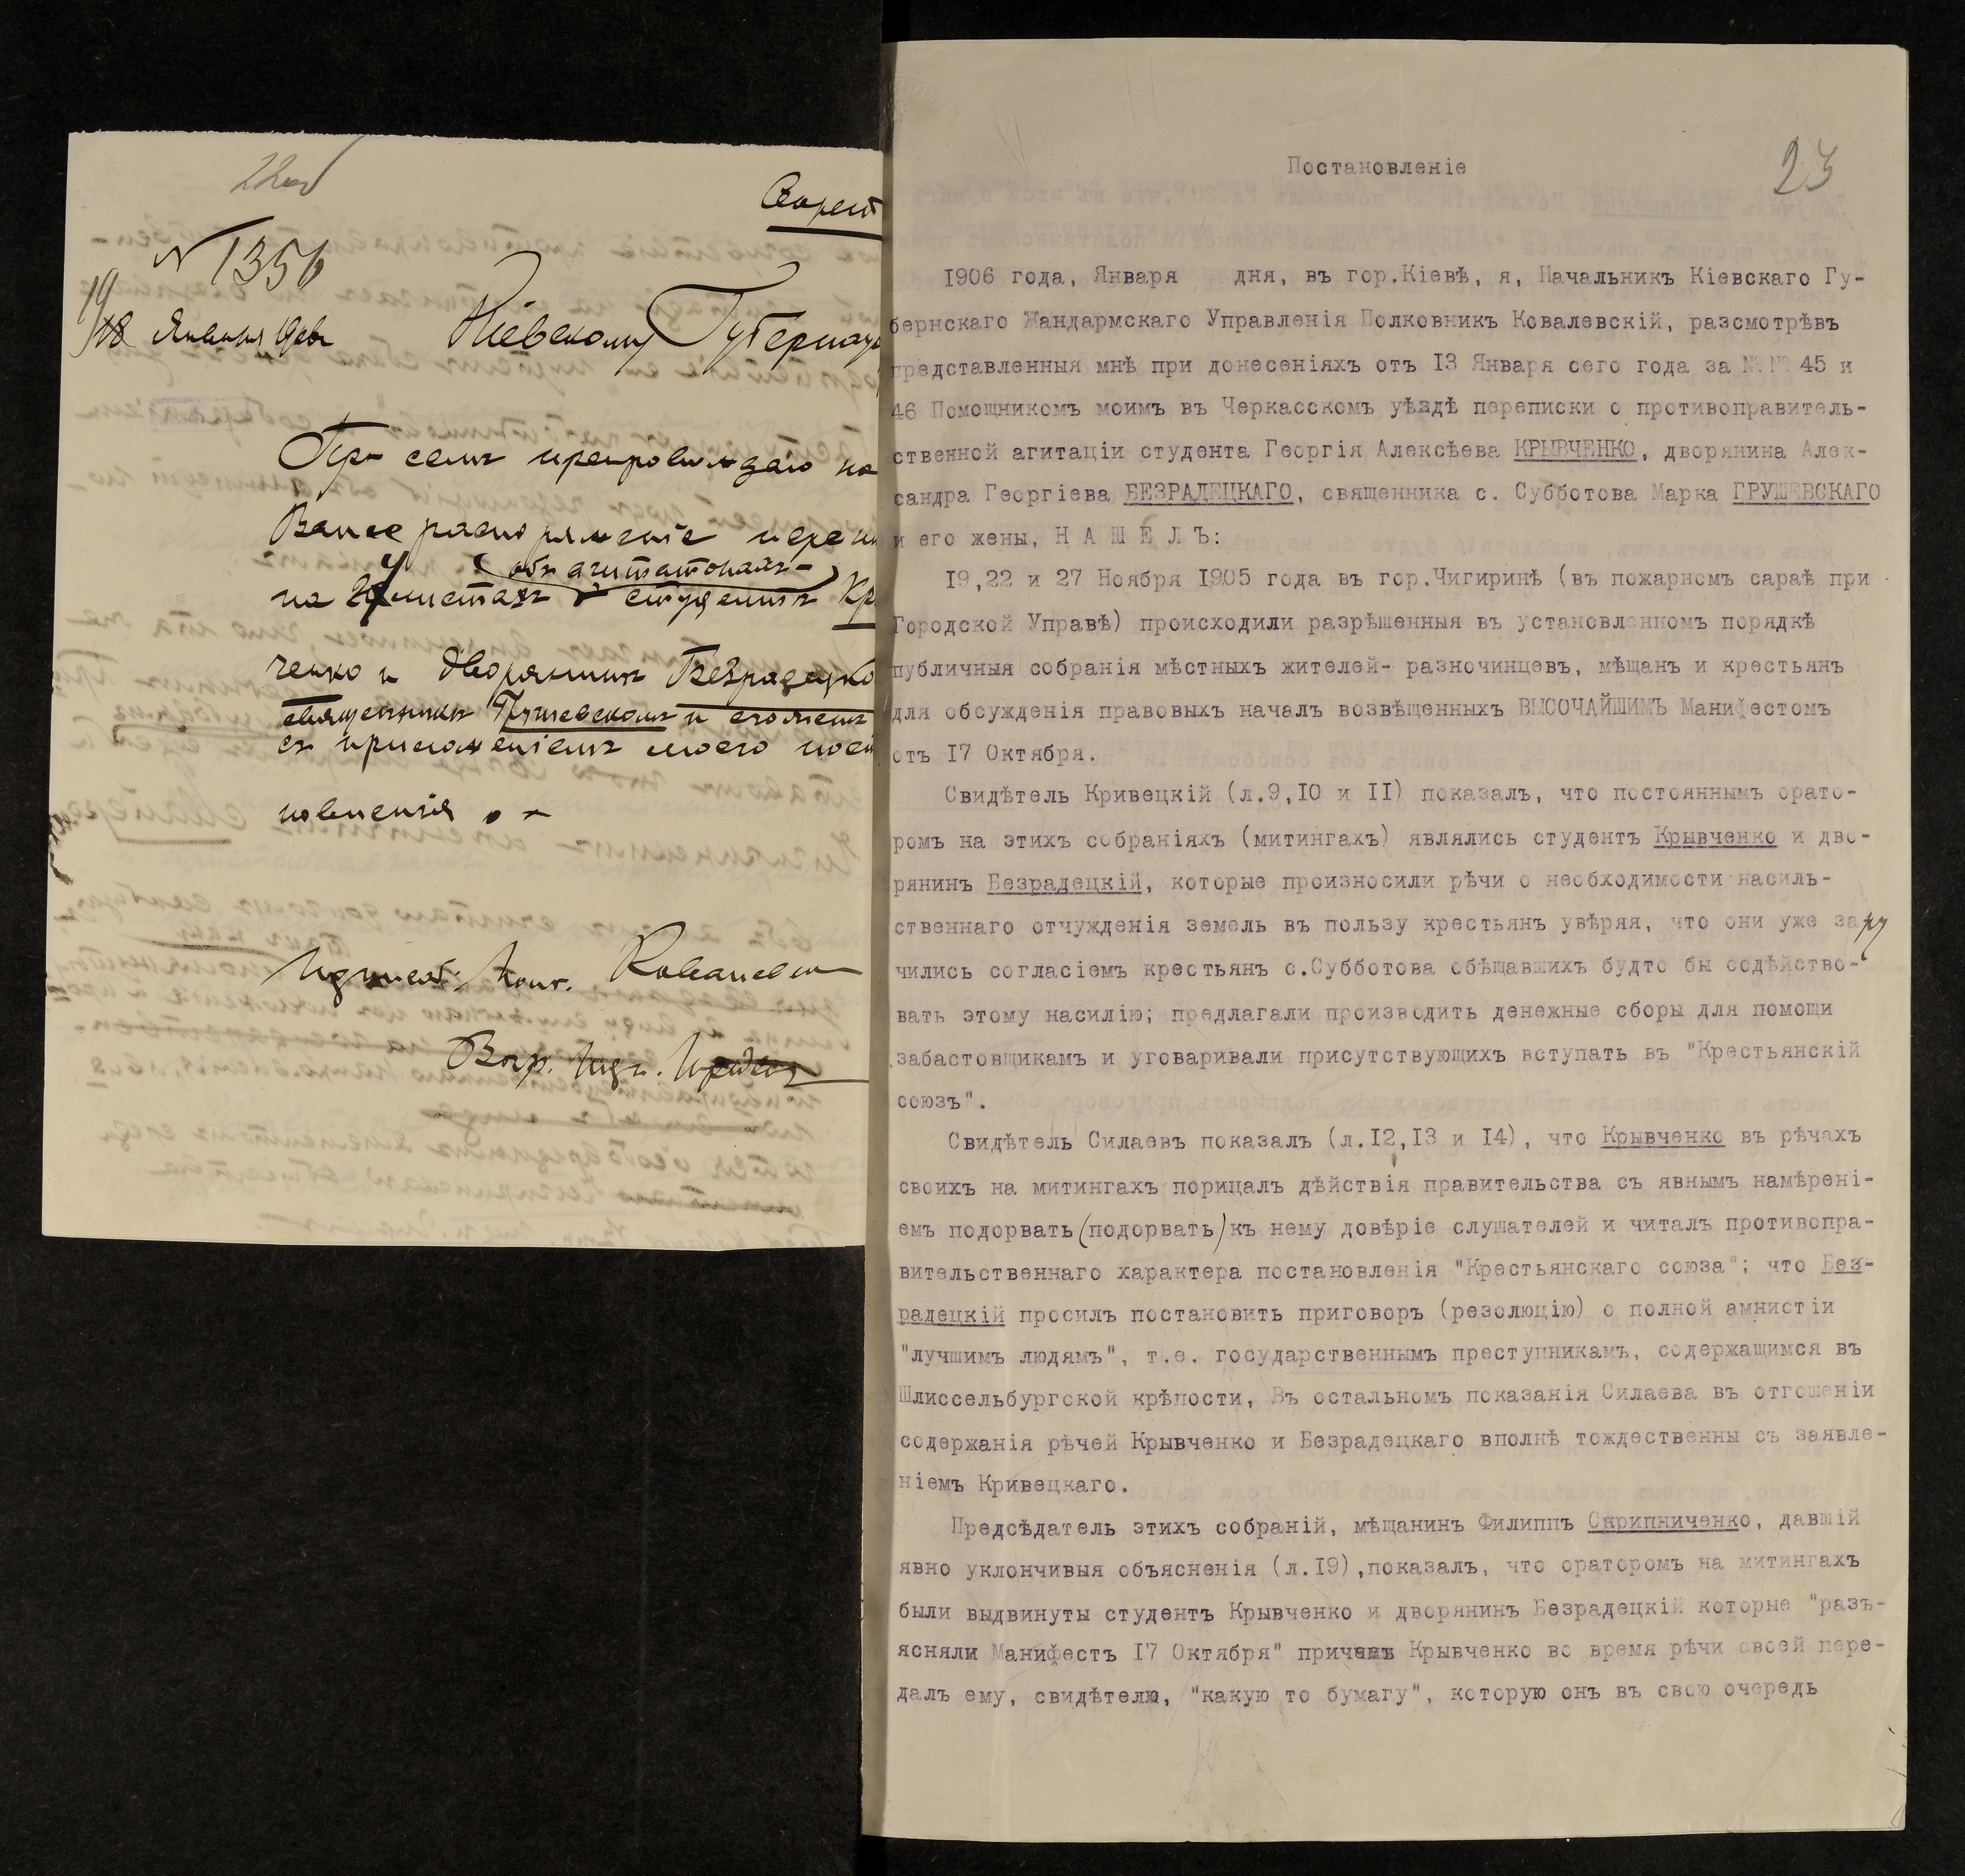 22об
Секрет
N 1356
19/18 Января 1906 Кіевскому Губернат
При семъ препровождаю на
Ваше распоряженіе переп
объ агитаторахъ-
на листахъ студентѣ Кр
ченко и дворянинѣ Безрадецко
священникѣ Грушевскомъ и его женѣ
съ приложеніемъ моего пост
новленія . -
Подписалъ: Полк. Ковалевск
23
Постановленіе
1906 года, Января дня, въ гор.Кіевѣ, я, Начальникъ Кіевскаго Гу-
бернскаго Жандармскаго Управленія Полковникъ Ковалевскій, разсмотрѣвъ
представленныя мнѣ при донесеніяхъ отъ 13 Января сего года за №№ 45 и
46 Помощникомъ моимъ въ Черкасскомъ уѣздѣ переписки о противоправитель-
ственной агитаціи студента Георгія Алексѣева КРЫВЧЕНКО, дворянина Алек-
сандра Георгіева БЕЗРАДЕЦКАГО, священника с. Субботова Марка ГРУШЕВСКАГО
и его жены, Н А Ш Е Л Ъ:
19,22 и 27 Ноября 1905 года въ гор.Чигиринѣ (въ пожарномъ сараѣ при
Городской Управѣ) происходили разрѣшенныя въ установленномъ порядкѣ
публичныя собранія мѣстныхъ жителей- разночинцевъ, мѣщанъ и крестьянъ
для обсужденія правовыхъ началъ возвѣщенныхъ ВЫСОЧАЙШИМЪ Манифестомъ
отъ 17 Октября.
Свидѣтель Кривецкій (л.9,10 и 11) показалъ, что постояннымъ орато-
ромъ на этихъ собраніяхъ (митингахъ) являлись студентъ Крывченко и дво-
рянинъ Безрадецкій, которые произносили рѣчи о необходимости насиль-
ственнаго отчужденія земель въ пользу крестьянъ увѣряя, что они уже зару
чились согласіемъ крестьянъ с.Субботова обѣщавшихъ будто бы содѣйство-
вать этому насилію; предлагали производить денежные сборы для помощи
забастовщикамъ и уговаривали присутствующихъ вступать въ "Крестьянскій
союзъ".
Свидѣтель Силаевъ показалъ (л.12,13 и 14), что Крывченко въ рѣчахъ
своихъ на митингахъ порицалъ дѣйствія правительства съ явнымъ намѣрені-
емъ подорвать(подорвать)къ нему довѣріе слушателей и читалъ противопра-
вительственнаго характера постановленія "Крестьянскаго союза"; что Без-
радецкій просилъ постановить приговоръ (резолюцію) о полной амнистіи
"лучшимъ людямъ", т.е. государственнымъ преступникамъ, содержащимся въ
Шлиссельбургской крѣпости, Въ остальномъ показанія Силаева въ отгошеніи
содержанія рѣчей Крывченко и Безрадецкаго вполнѣ тождественны съ заявле-
ніемъ Кривецкаго.
Предсѣдатель этихъ собраній, мѣщанинъ Филиппъ Скрипниченко, давшій
явно уклончивыя объясненія (л.19),показалъ, что ораторомъ на митингахъ
были выдвинуты студентъ Крывченко и дворянинъ Безрадецкій которые "разъ-
ясняли Манифестъ 17 Октября" причемъ Крывченко во время рѣчи своей пере-
далъ ему, свидѣтелю, "какую то бумагу", которую онъ въ свою очередь